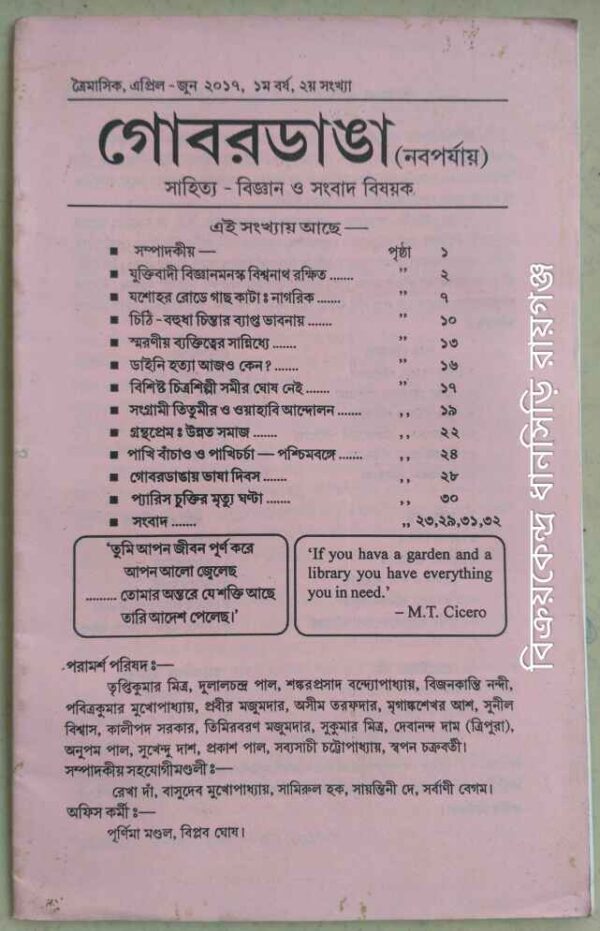 ত্রৈমাসিক, এপ্রিল - জুন ২০১৭, ১ম বর্ষ, ২য় সংখ্যা
গোবরডাঙা (নবপর্যায়)
সাহিত্য - বিজ্ঞান ও সংবাদ বিষয়ক
এই সংখ্যায় আছে —
■ সম্পাদকীয় — পৃষ্ঠা ১
■ যুক্তিবাদী বিজ্ঞানমনস্ক বিশ্বনাথ রক্ষিত ....... ” ২
■ যশোহর রোডে গাছ কাটা ঃ নাগরিক ....... ” ৭
■ চিঠি - বহুধা চিন্তার ব্যাপ্ত ভাবনায় ....... ” ১০
■ স্মরণীয় ব্যক্তিত্বের সান্নিধ্যে ....... ” ১৩
■ ডাইনি হত্যা আজও কেন ? ....... ” ১৬
■ বিশিষ্ট চিত্রশিল্পী সমীর ঘোষ নেই ....... ” ১৭
■ সংগ্রামী তিতুমীর ও ওয়াহাবি আন্দোলন ....... ,, ১৯
■ গ্রন্থপ্রেম ঃ উন্নত সমাজ ....... ,, ২২
■ পাখি বাঁচাও ও পাখিচর্চা — পশ্চিমবঙ্গে ....... ,, ২৪
■ গোবরডাঙায় ভাষা দিবস ....... ,, ২৮
■ প্যারিস চুক্তির মৃত্যু ঘণ্টা ....... ,, ৩০
■ সংবাদ ....... ,, ২৩,২৯,৩১,৩২
‘তুমি আপন জীবন পূর্ণ করে
আপন আলো জ্বেলেছ
......... তোমার অন্তরে যে শক্তি আছে
তারি আদেশ পেলেছ।’
‘If you hava a garden and a
library you have everything
you in need.’
– M.T. Cicero
পরামর্শ পরিষদ ঃ—
তৃপ্তিকুমার মিত্র, দুলালচন্দ্র পাল, শঙ্করপ্রসাদ বন্দ্যোপাধ্যায়, বিজনকান্তি নন্দী,
পবিত্রকুমার মুখোপাধ্যায়, প্রবীর মজুমদার, অসীম তরফদার, মৃগাঙ্কশেখর আশ, সুনীল
বিশ্বাস, কালীপদ সরকার, তিমিরবরণ মজুমদার, সুকুমার মিত্র, দেবানন্দ দাম (ত্রিপুরা),
অনুপম পাল, সুখেন্দু দাশ, প্রকাশ পাল, সব্যসাচী চট্টোপাধ্যায়, স্বপন চক্রবর্তী।
সম্পাদকীয় সহযোগীমণ্ডলী ঃ—
রেখা দাঁ, বাসুদেব মুখোপাধ্যায়, সামিরুল হক, সায়ন্তিনী দে, সর্বাণী বেগম।
অফিস কর্মী ঃ—
পূর্ণিমা মণ্ডল, বিপ্লব ঘোষ।
বিক্রয়কেন্দ্র ধানসিড়ি রায়গঞ্জ